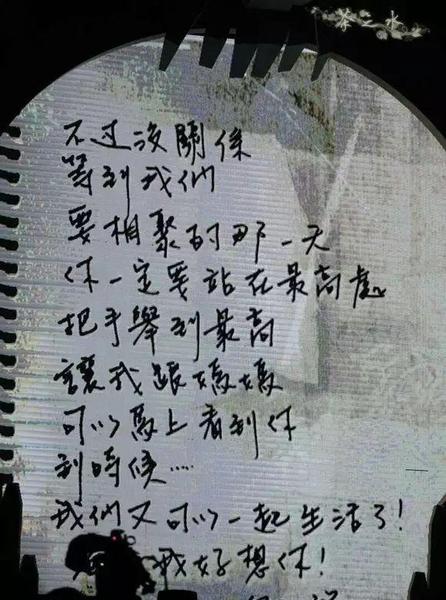 不过沒關係
等到我們
要相聚的那一天
你一定要站在最高處
把手舉到最高
讓我跟媽媽
可以馬上看到你
到時候....
我們又可以一起生活了!
我好想你!